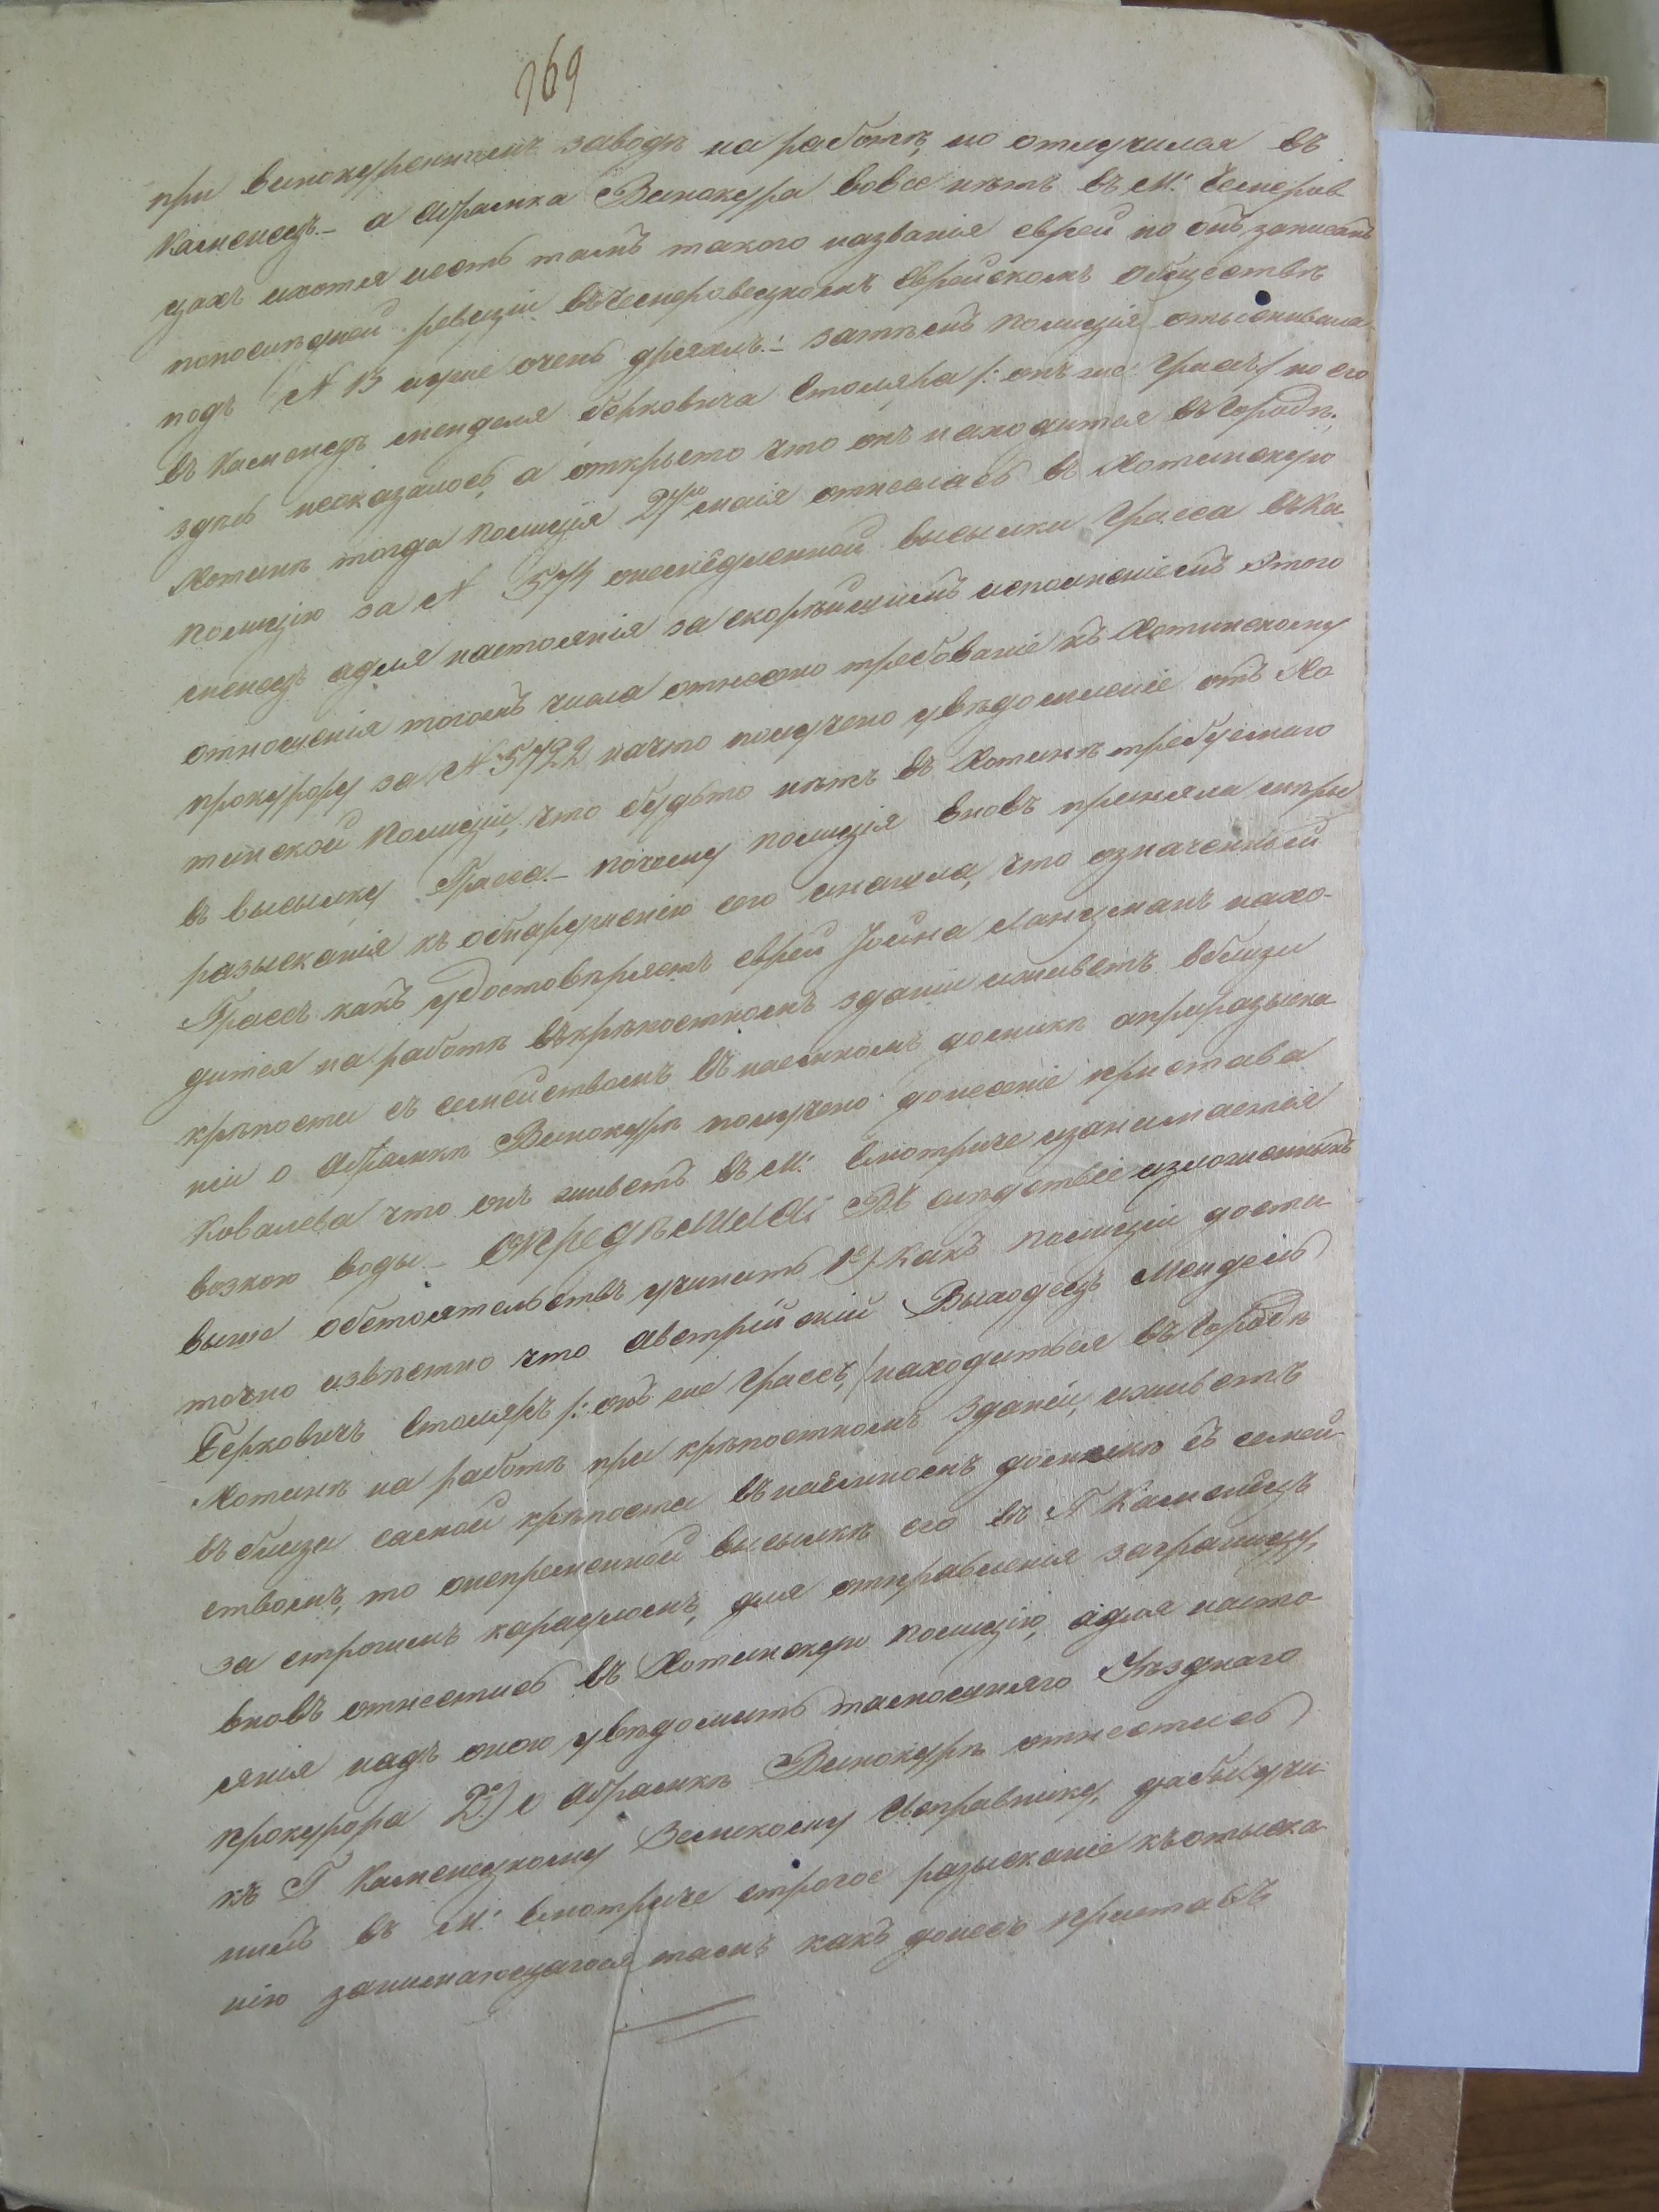 169
при винокуренномъ заводѣ на работѣ, но отлучился въ
Каменецъ.– а Абрамка Винокура вовсе нѣтъ въ М: Чемеров-
цахъ ихотя иесть тамъ такого названія еврей но онъ записанъ
попослѣдней ревизіи въ Чемеровецкомъ Еврейскомъ обществѣ
подъ N 13 иуже очень дряхлъ.– затѣмъ полиція отыскивала
въ Каменецѣ менделя Берковича Столяра /: онъ же Грасъ / но его
здѣсь неоказалось, а открыто что онъ находится въ Городѣ
Хотинѣ тогда полиція 27го маія отнеслась въ Хотинскую
полицію за N 5741 онемедленной высылки Грасса въ Ка
менецъ адля настоянія за скорѣйшимъ исполненіемъ этого
отношенія тогожъ числа отнесено требованіе къ Хотинскому
прокурору за N 5722 начто получено увѣдомленіе отъ Хо
тинской полиціи, что будьто нѣтъ въ Хотинѣ требуемаго
въ высылку Грасса.– почему полиція вновъ приняла мѣры
разысканія къ обнаруженію его инашла, что означенный
Грассъ какъ удостовѣряетъ еврей Іосина Ланцманъ нахо-
дится на работѣ въкрѣпостномъ зданіи иживетъ вблизи
крѣпости съ семействомъ въ наемномъ домикѣ априразыска
ніи о Абрамкѣ Винокурѣ получено донесеніе пристава
Ковалева что онъ живетъ въ М: Смотриче изанимается
возкою воды.– ОПРЕДѢЛИЛИ: Въ слѣдствіе изложенныхъ
выше обстоятельствъ учинить 1е) Какъ полиціи доста
точно извѣстно что австрійскій Выходецъ Мендель
Берковичъ Столяръ /: онъ же Грассъ, / находиться въ Городѣ
Хотинѣ на работѣ при крѣпостномъ зданіи, иживетъ
въ близи самой крѣпости въ наемномъ домикѣ съ семей
ствомъ, то онепременной высылкѣ его въ Г Каменецъ
за строгимъ карауломъ, для отправленія заграницу,
вновъ отнестись въ Хотинскую полицію, адля насто
янія надъ оною увѣдомить тамошняго Уѣзднаго
прокурора 2е) о Абрамкѣ Винокурѣ отнестись
къ Г Каменецкому Земскому Исправнику, дабы учи
нилъ въ М: Смотриче строгое разысканіе къ отыска
нію занимающагося тамъ какъ донесъ приставъ